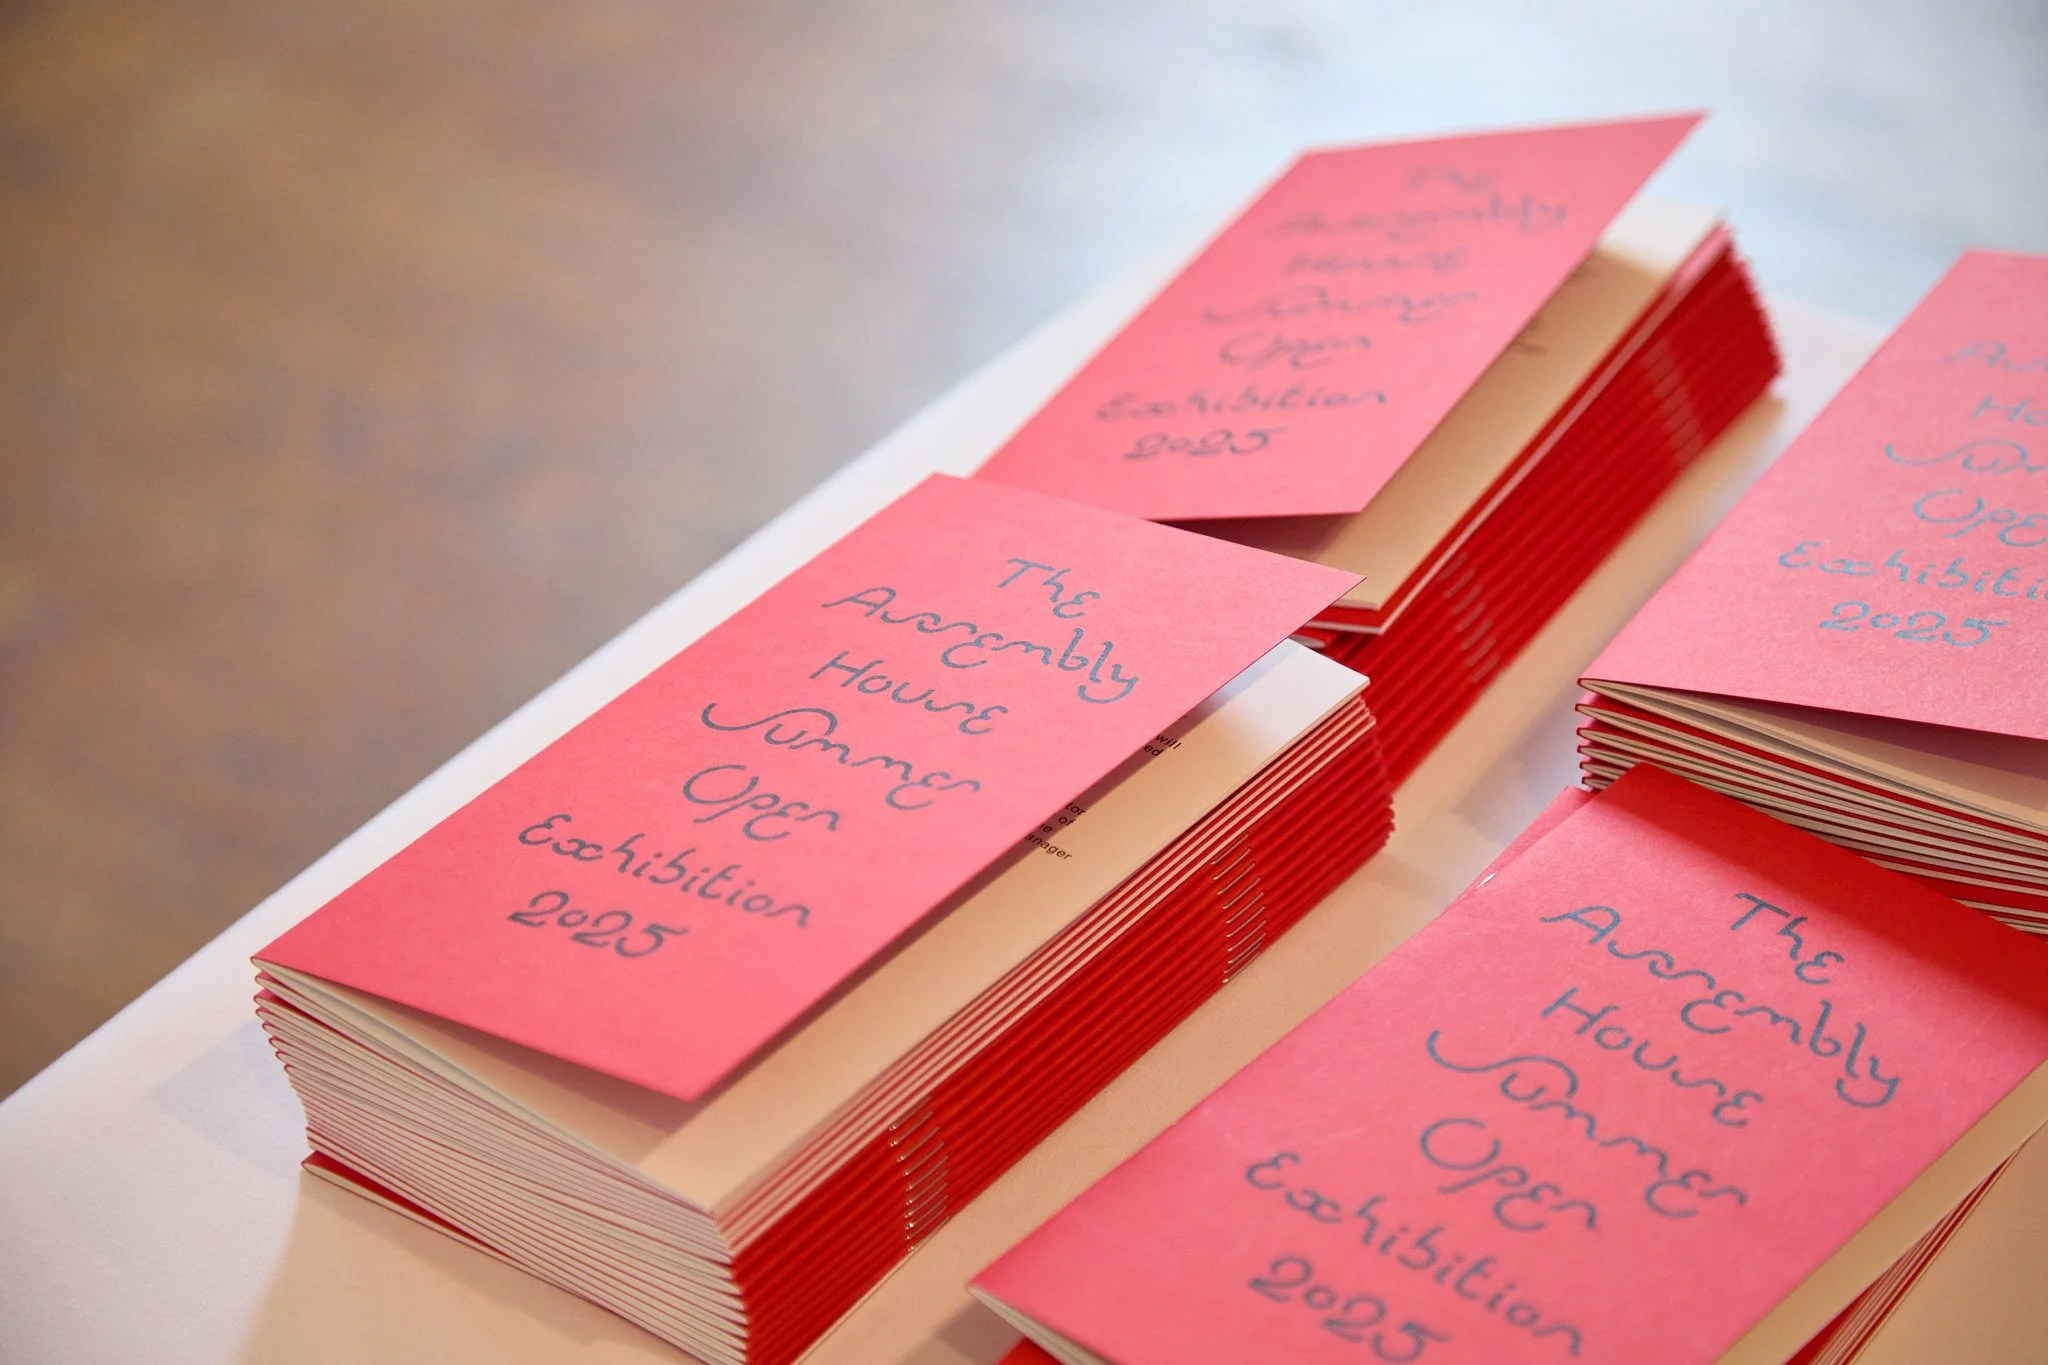 The
Assembly
House
Summer
Open
Exhibition
2025
The
Assembly
House
Summer
Open
Exhibition
2025
will
ed
tor
e of
anager
As
Ho
Sum
Ope
Exhibiti
2025
The
Assembly
House
Summer
Open
Exhibition
2025